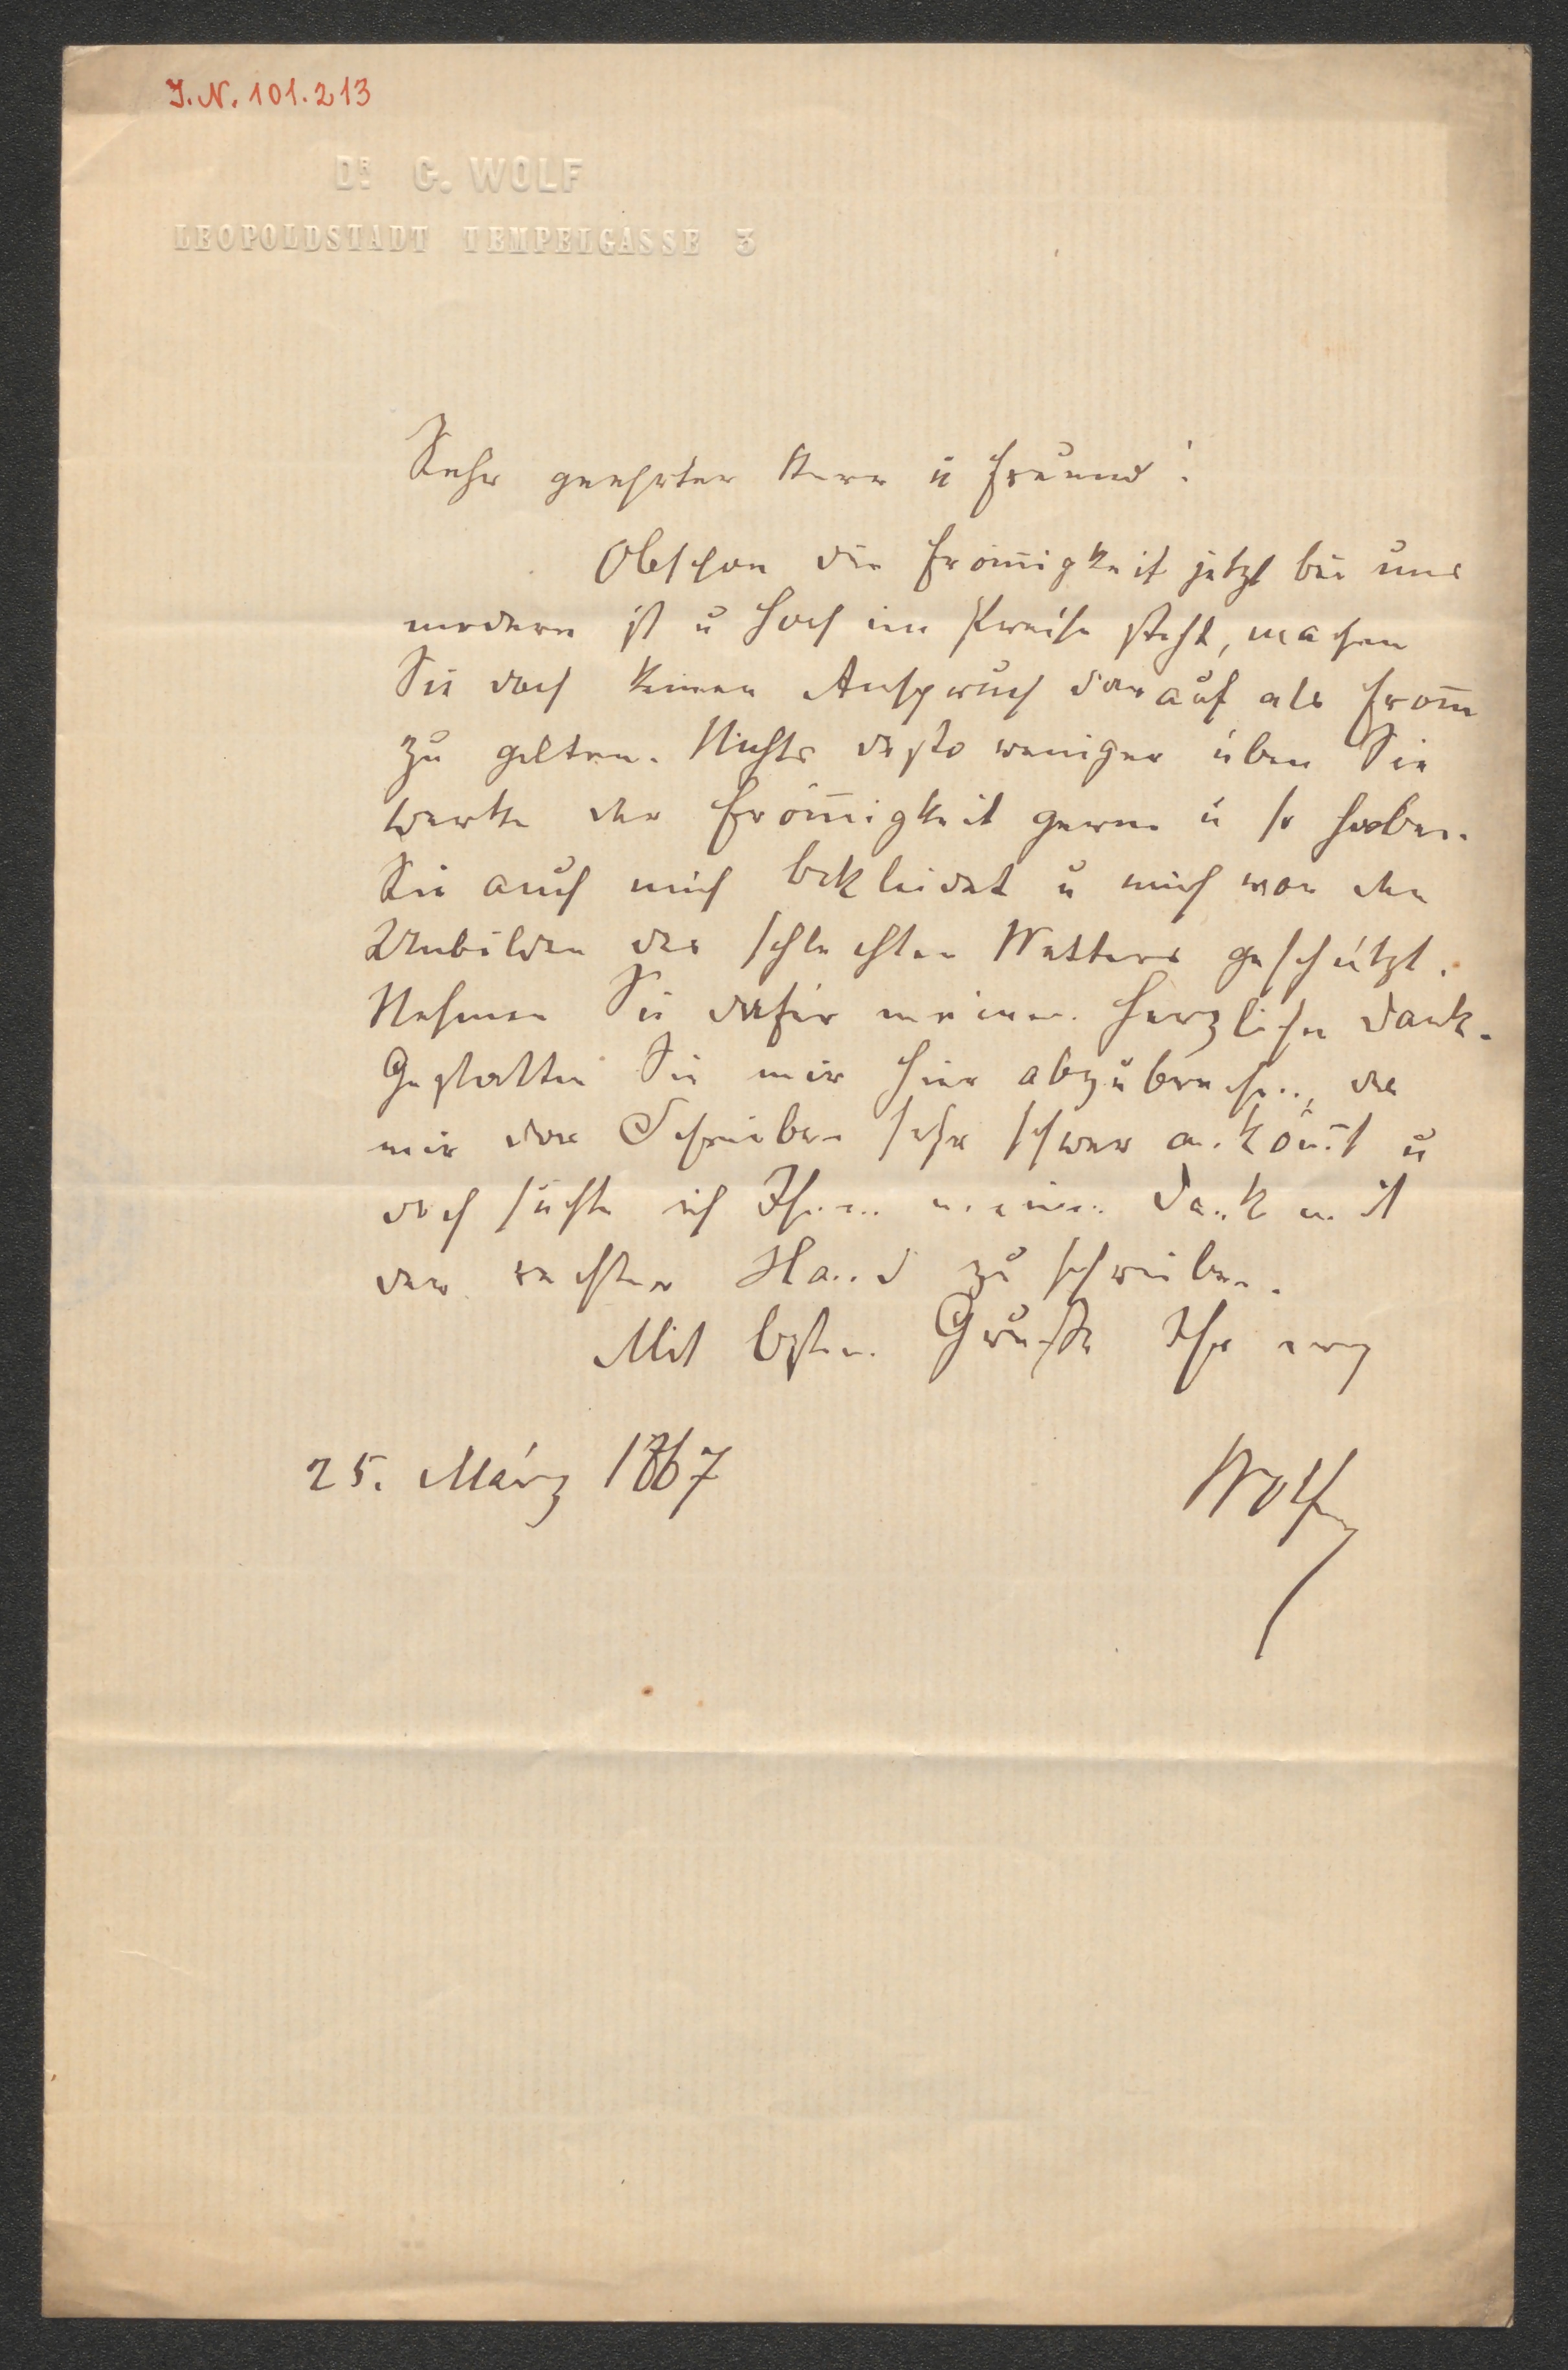 J.N. 101.213
DR. G. WOLF
LEOPOLDSTADT TEMPELGASSE 3
Sehr geehrter Herr u Freund!
Obschon die Fröm̅igkeit jetzt bei uns
modern ist u hoch im Preise steht, machen
Sie doch keinen Anspruch darauf als from̅
zu gelten. Nichts desto weniger üben Sie
Werke der Fröm̅igkeit gerne u so haben
Sie auch mich bekleidet u mich vor den
Unbilden des schlechten Wetters geschützt.
Nehmen Sie dafür meinen herzlichen Dank.
Gestatten Sie mir hier abzubrechen, da
mir das Schreiben sehr schwer ankömt u
doch suchte ich Ihnen meinen Dank mit
der rechten Hand zu schreiben.
Mit besten Gruße Ihr erg
25. März 1867
Wolf